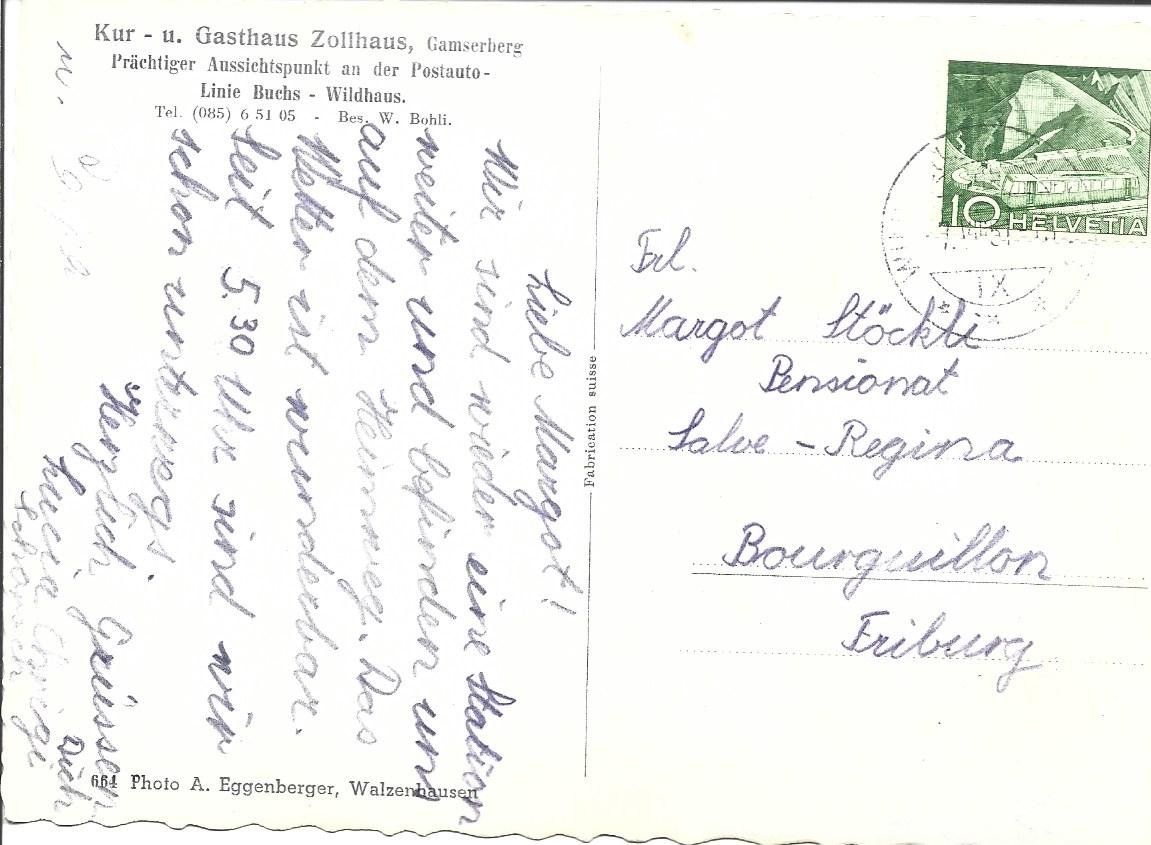 Kur - u. Gasthaus Zollhaus, Gamserberg
Prächtiger Aussichtspunkt an der Postauto-
Linie Buchs - Wildhaus.
Tel. (085) 6 51 05 - Bes. W. Bohli.
Liebe Margot!
Wir sind wieder eine Station
weiter und befinden uns
auf dem Heimweg. Das
Wetter ist wunderbar.
Seit 5.30 Uhr sind wir
schon unterwegs.
Herzlich Grüssen Dich
Lucia
664 Photo A. Eggenberger, Walzenhausen
Fabrication suisse
10 HELVETIA
IX
Frl.
Margot Stöckli
Pensionat
Salve - Regina
Bourguillon
Friburg